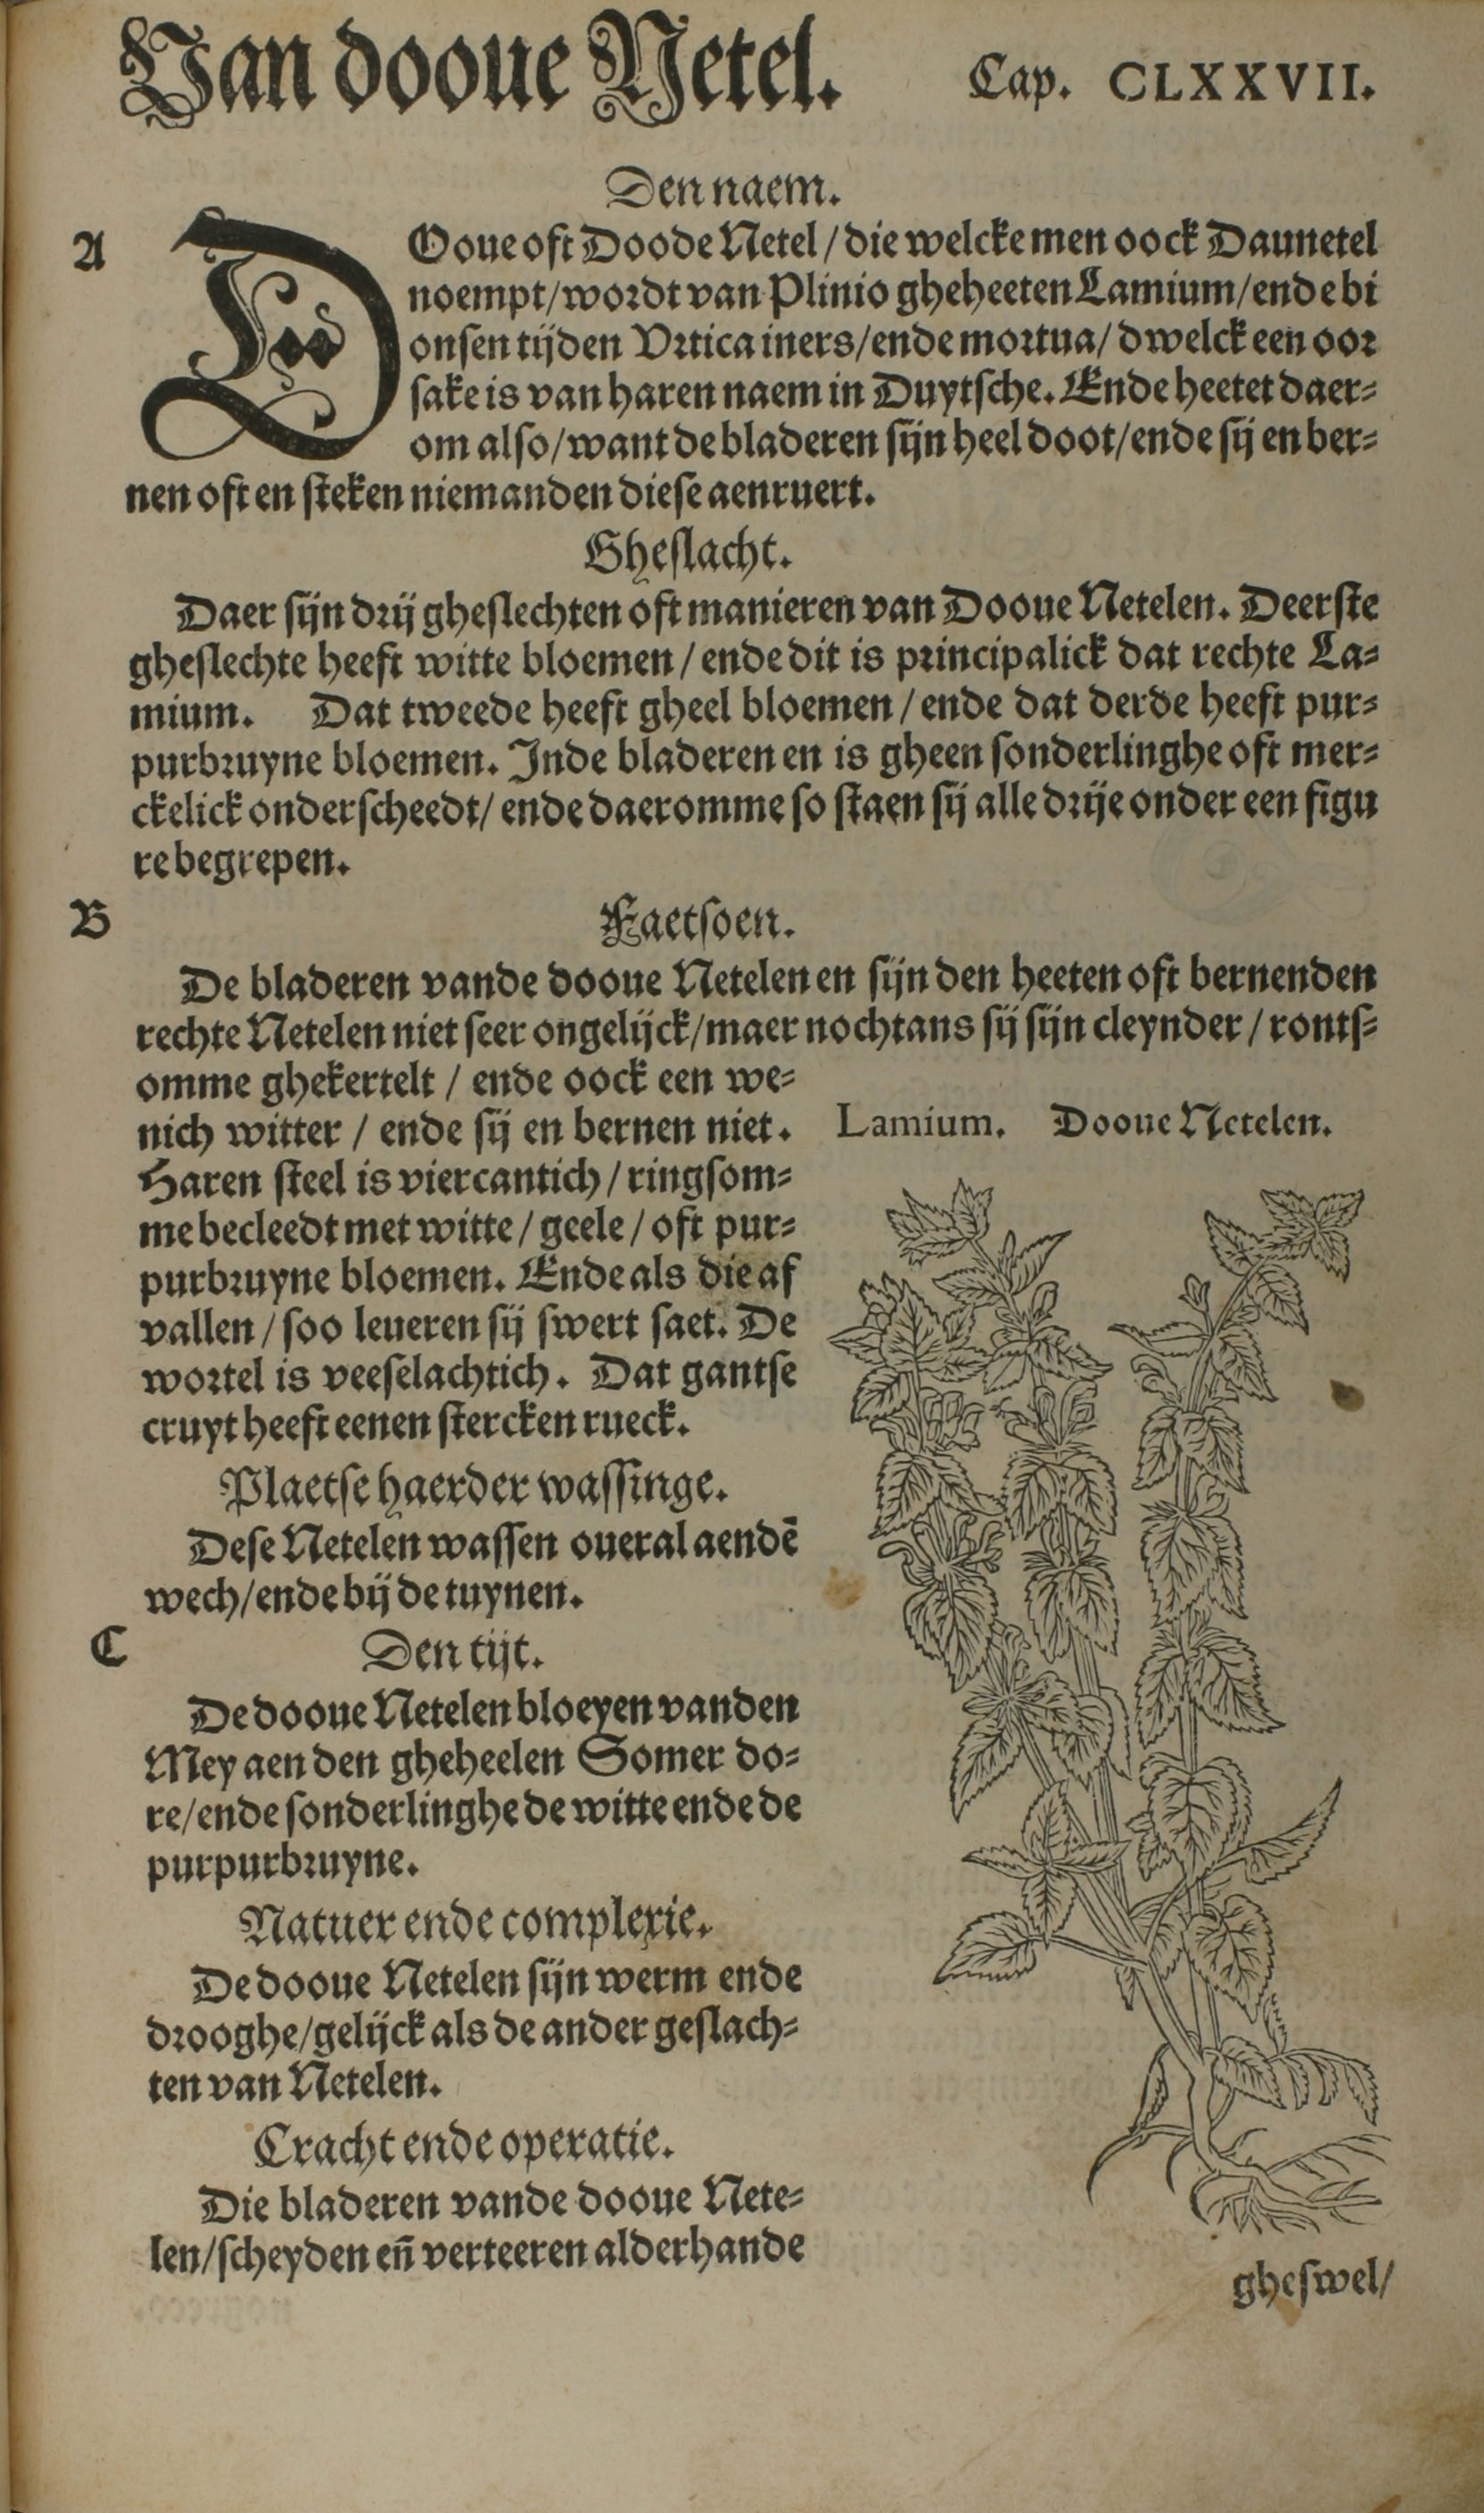 Van dooue Netel. Cap. CLXXVII.
Den naem.
A
DOoue oft Doode Netel / die welcke men oock Daunetel
noempt/wordt van Plinio gheheeten Lamium/ende bi
onsen tijden Vrtica iners/ende mortua/ dwelck een oor
sake is van haren naem in Duytsche. Ende heetet daer-
om also/want de bladeren sijn heel doot/ende sij en ber-
nen oft en steken niemanden diese aenruert.
Gheslacht.
Daer sijn drij gheslechten oft manieren van Dooue Netelen. Deerste
gheslechte heeft witte bloemen / ende dit is principalick dat rechte La-
mium. Dat tweede heeft gheel bloemen / ende dat derde heeft pur-
purbruyne bloemen. Inde bladeren en is gheen sonderlinghe oft mer-
ckelick onderscheedt/ ende daeromme so staen sij alle drije onder een figu
re begrepen.
B
Faetsoen.
De bladeren vande dooue Netelen en sijn den heeten oft bernenden
rechte Netelen niet seer ongelijck/maer nochtans sij sijn cleynder / ronts-
omme ghekertelt / ende oock een we-
nich witter / ende sij en bernen niet.
Haren steel is viercantich / ringsom-
me becleedt met witte / geele / oft pur-
purbruyne bloemen. Ende als die af
vallen / soo leueren sij swert saet. De
wortel is veeselachtich. Dat gantse
cruyt heeft eenen stercken rueck.
Plaetse haerder wassinge.
Dese Netelen wassen oueral aendē
wech/ende bij de tuynen.
C
Den tijt.
De dooue Netelen bloeyen vanden
Mey aen den gheheelen Somer do-
re/ende sonderlinghe de witte ende de
purpurbruyne.
Natuer ende complexie.
De dooue Netelen sijn werm ende
drooghe/gelijck als de ander geslach-
ten van Netelen.
Cracht ende operatie.
Die bladeren vande dooue Nete-
len/scheyden eñ verteeren alderhande
Lamium. Dooue Netelen.
gheswel/